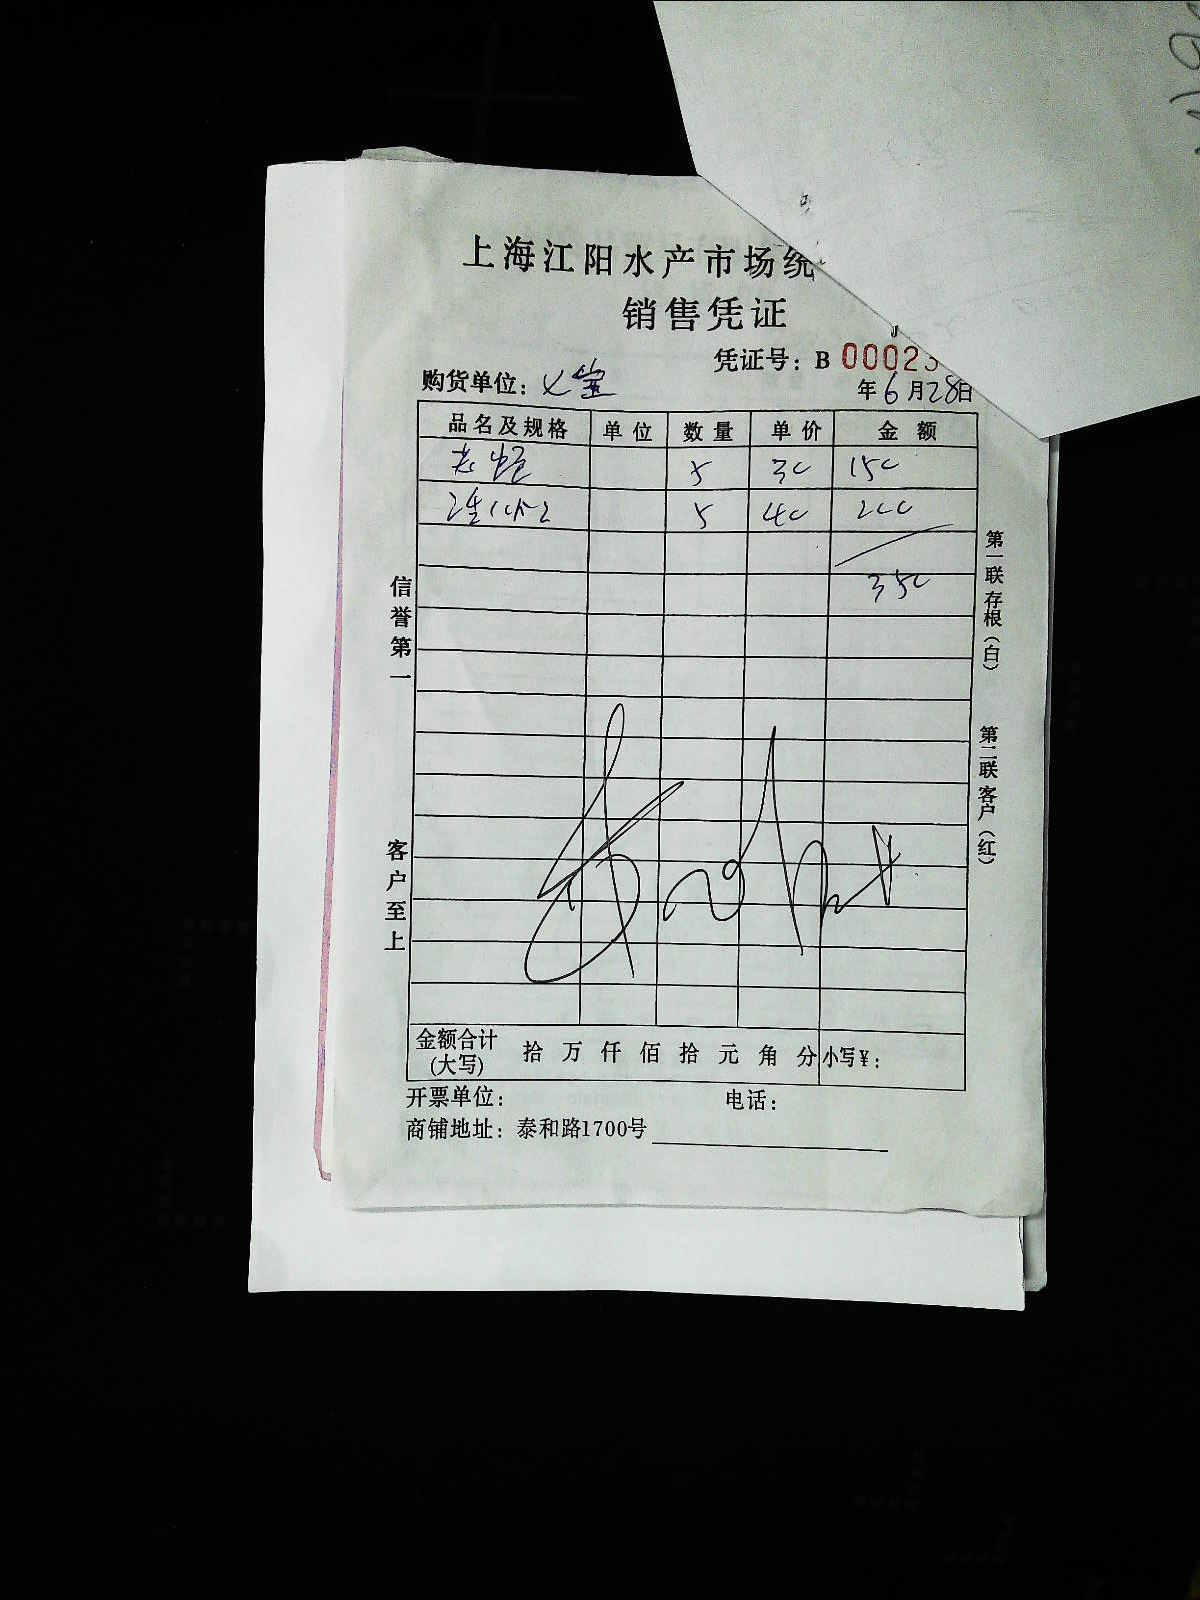 上海江阳水产市场统
销售凭证
凭证号：B 00023
购货单位：义宝
年6月28日
品名及规格 单位 数量 单价 金额
5 30 150
5 40 200
350
信誉第一
客户至上
第一联存根（白）
第二联客户（红）
金额合计(大写) 拾 万 仟 佰 拾 元 角 分 小写¥：
开票单位： 电话：
商铺地址：泰和路1700号